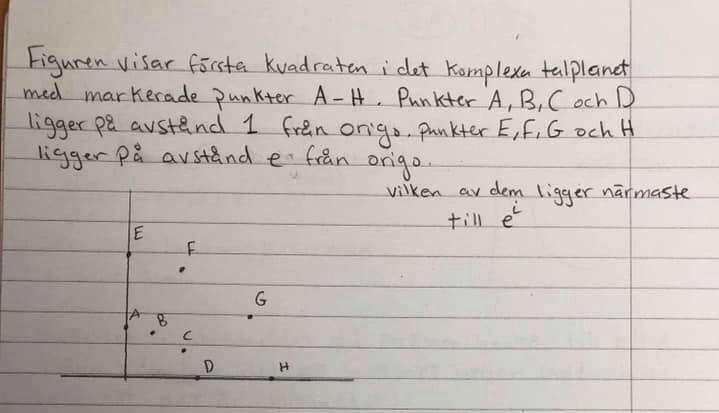 Figuren visar första kvadraten i det komplexa talplanet
med markerade punkter A-H. Punkter A, B, C och D
ligger på avstånd 1 från origo. punkter E, F, G och H
ligger på avstånd e från origo.
vilken av dem ligger närmaste
till e^i
E
F
G
A
B
C
D
H